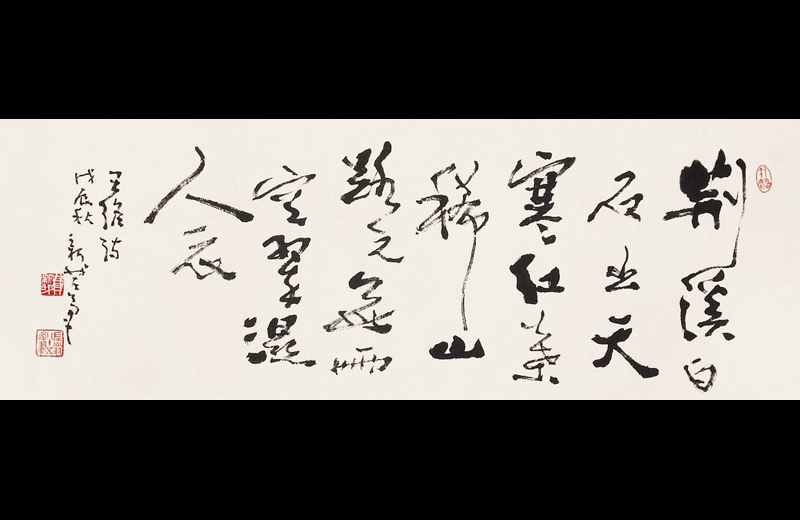 荆溪白
石出天
寒红葉
稀山
路元無雨
空翠濕
人衣
王維詩
戊辰秋